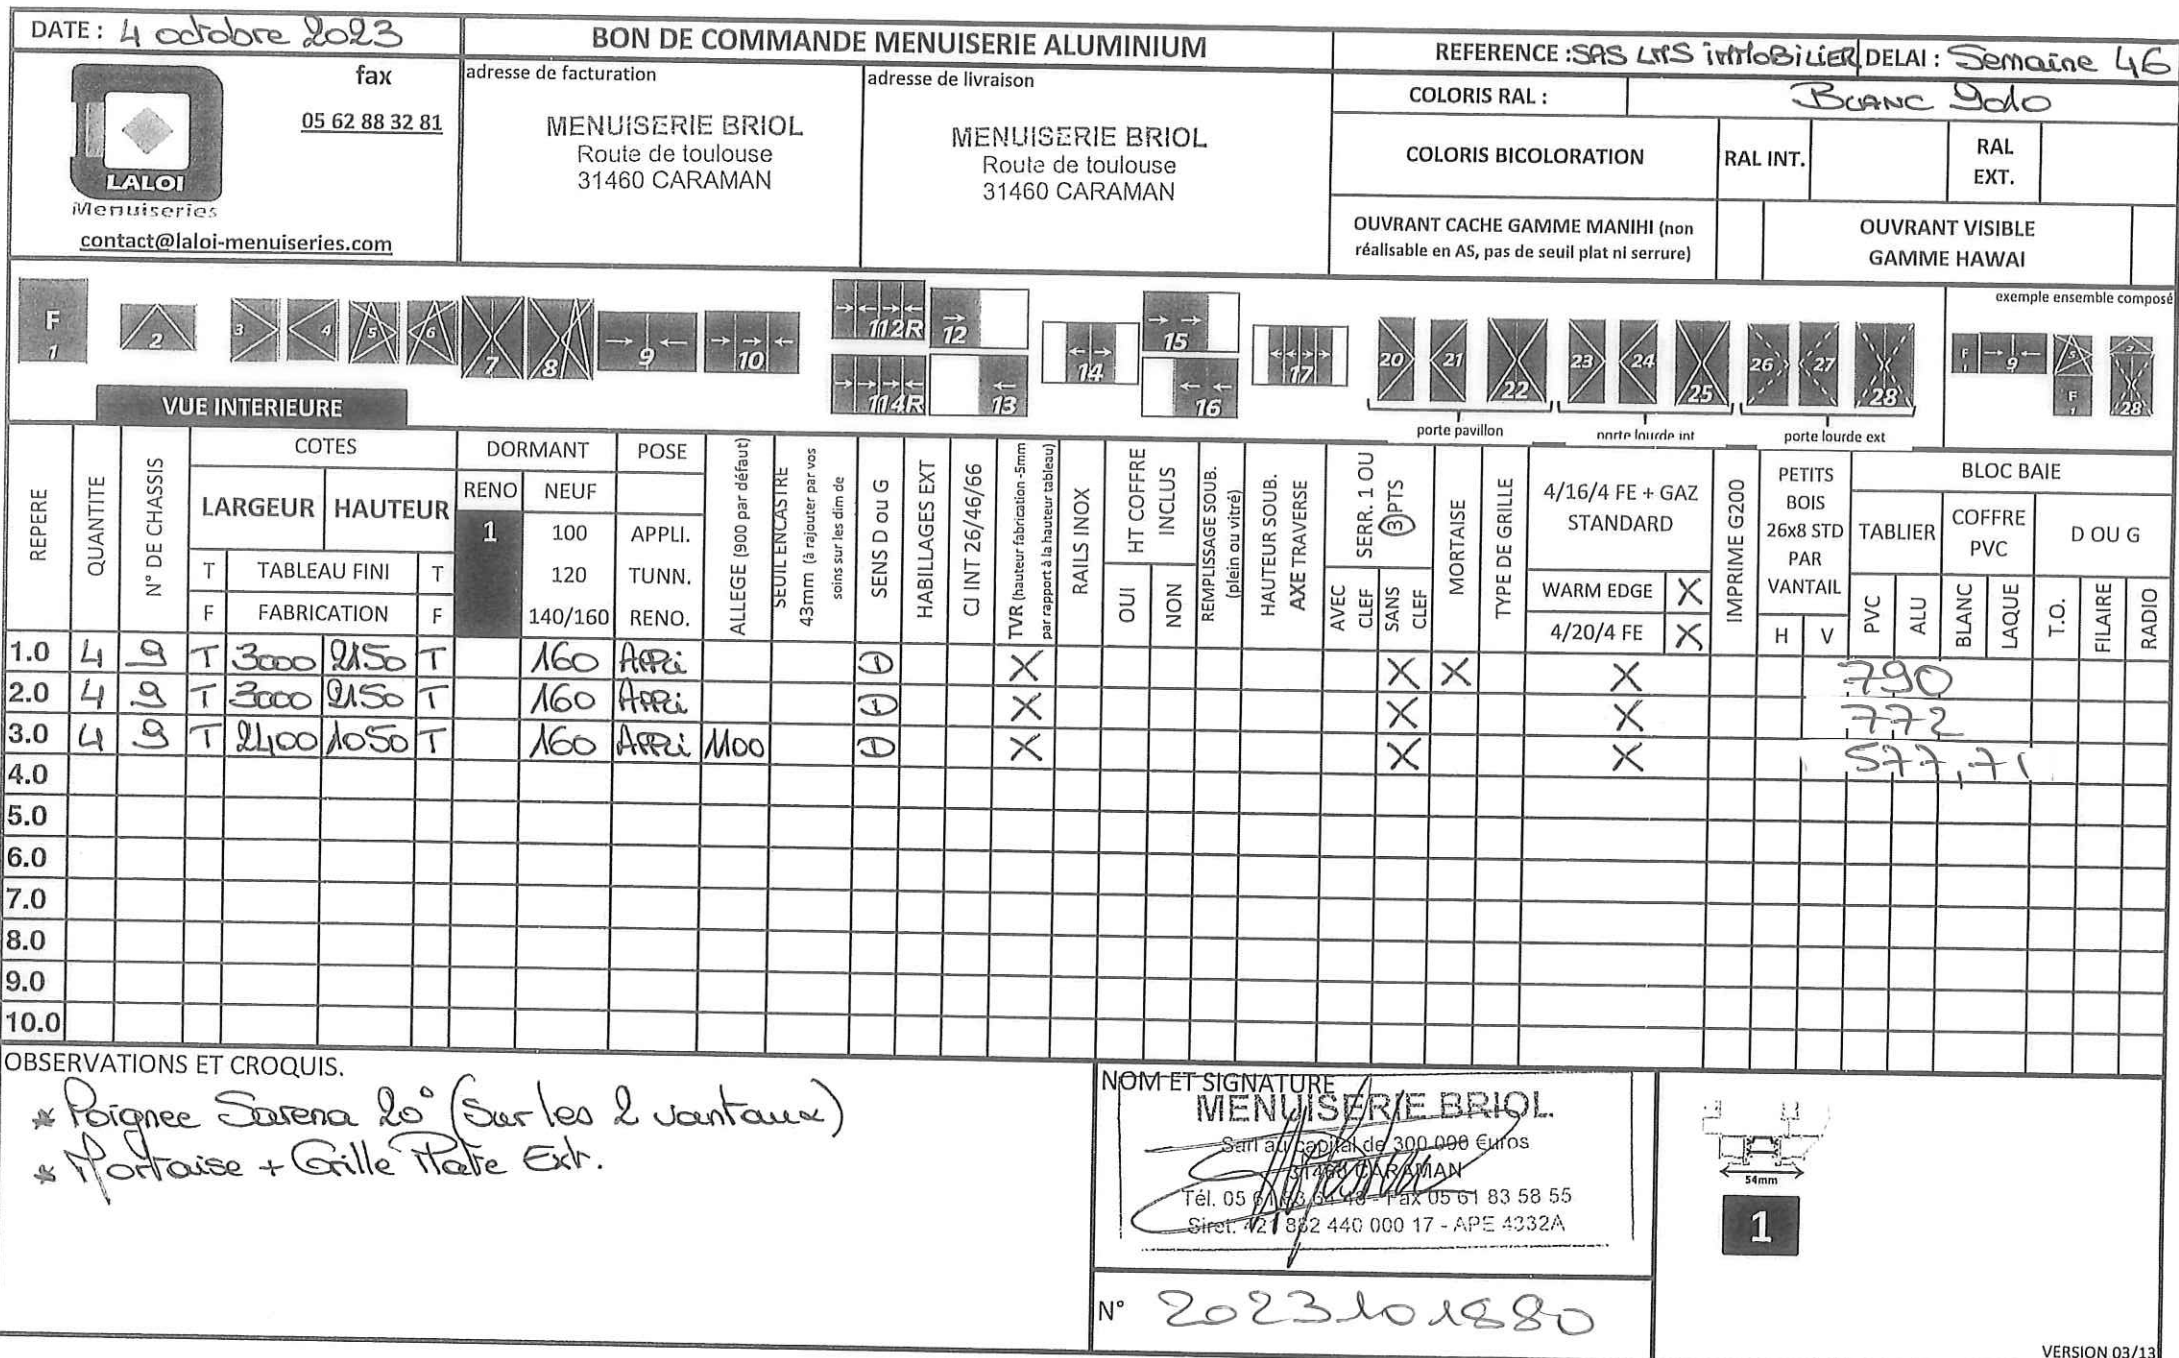 DATE : 4 octobre 2023
BON DE COMMANDE MENUISERIE ALUMINIUM
REFERENCE : SAS LMS iMMOBiLiER
DELAI : Semaine 46
fax
05 62 88 32 81
LALOI
Menuiseries
contact@laloi-menuiseries.com
adresse de facturation
MENUISERIE BRIOL
Route de toulouse
31460 CARAMAN
adresse de livraison
MENUISERIE BRIOL
Route de toulouse
31460 CARAMAN
COLORIS RAL :
BLANC 9010
COLORIS BICOLORATION
RAL INT.
RAL
EXT.
OUVRANT CACHE GAMME MANIHI (non
réalisable en AS, pas de seuil plat ni serrure)
OUVRANT VISIBLE
GAMME HAWAI
F
1
2
3
4
5
6
7
8
9
10
112R
114R
12
13
14
15
16
17
20
21
22
porte pavillon
23
24
25
porte lourde int
26
27
28
porte lourde ext
exemple ensemble composé
F
1
9
5
F
1
2
28
VUE INTERIEURE
REPERE
QUANTITE
N° DE CHASSIS
COTES
LARGEUR
HAUTEUR
T TABLEAU FINI T
F FABRICATION F
DORMANT
RENO NEUF
1 100
120
140/160
POSE
APPLI.
TUNN.
RENO.
ALLEGE (900 par défaut)
SEUIL ENCASTRE
43mm (à rajouter par vos
soins sur les dim de
SENS D ou G
HABILLAGES EXT
CJ INT 26/46/66
TVR (hauteur fabrication -5mm
par rapport à la hauteur tableau)
RAILS INOX
HT COFFRE
INCLUS
OUI
NON
REMPLISSAGE SOUB.
(plein ou vitré)
HAUTEUR SOUB.
AXE TRAVERSE
SERR. 1 OU
3 PTS
AVEC
CLEF
SANS
CLEF
MORTAISE
TYPE DE GRILLE
4/16/4 FE + GAZ
STANDARD
WARM EDGE X
4/20/4 FE X
IMPRIME G200
PETITS
BOIS
26x8 STD
PAR
VANTAIL
H V
BLOC BAIE
TABLIER
PVC
ALU
COFFRE
PVC
BLANC
LAQUE
D OU G
T.O.
FILAIRE
RADIO
1.0 4 9 T 3000 2150 T 160 APPLi D X X X X 790
2.0 4 9 T 3000 2150 T 160 APPLi D X X X 772
3.0 4 9 T 2400 1050 T 160 APPLi 1100 D X X X 577,71
4.0
5.0
6.0
7.0
8.0
9.0
10.0
OBSERVATIONS ET CROQUIS.
* Poignee Sarena 20° (Sur les 2 vantaux)
* Mortaise + Grille Plate Ext.
NOM ET SIGNATURE
MENUISERIE BRIOL
Sarl au capital de 300 000 Euros
31460 CARAMAN
Tél. 05 61 83 64 48 - Fax 05 61 83 58 55
Siret. 421 882 440 000 17 - APE 4332A
N° 2023101880
54mm
1
VERSION 03/13